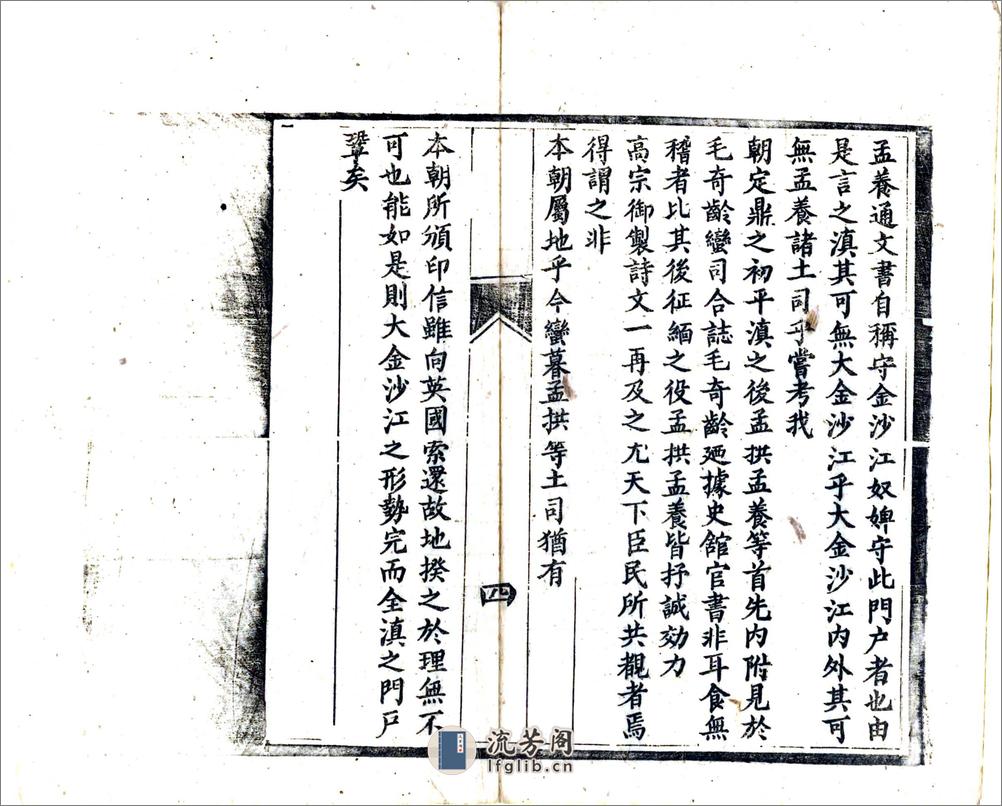 孟養通文書自稱守金沙江奴婢守此門户者也由
是言之滇其可無大金沙江乎大金沙江内外其可
無孟養諸土司乎嘗考我
朝定鼎之初平滇之後孟拱孟養等首先内附見於
毛奇齡蠻司合誌毛奇齡廼據史舘官書非耳食無
稽者比其後征緬之役孟拱孟養皆抒誠効力
高宗御製詩文一再及之尤天下臣民所共覩者焉
得謂之非
本朝屬地乎今蠻暮孟拱等土司猶有
四
本朝所頒印信雖向英國索還故地揆之於理無不
可也能如是則大金沙江之形勢完而全滇之門戶
鞏矣
流芳阁
lfglib.cn